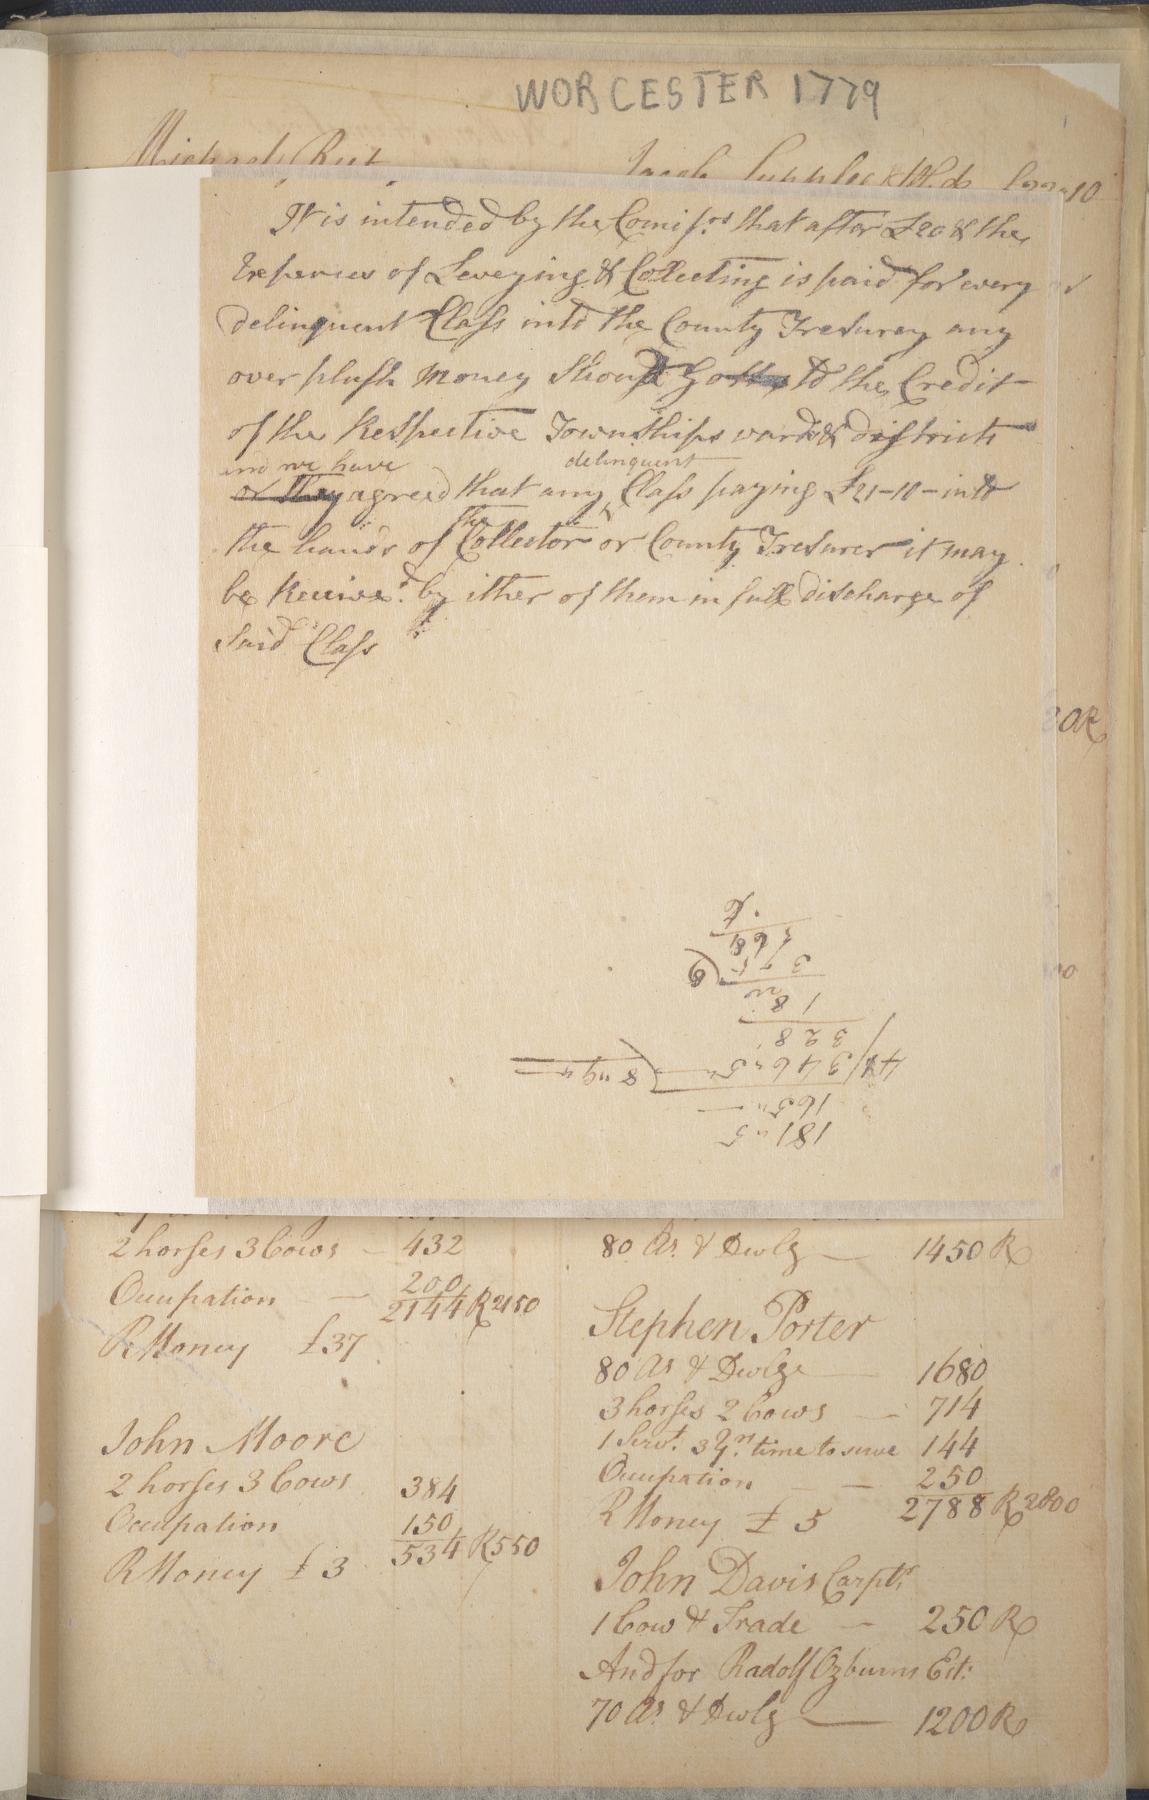 WORCESTER 1779
Michael
Jacob
It is intended by the Comissrs that after £20 & the
Expences of Leveying & Collecting is paid for every
delinquent Class into the County Tresurey any
over plush money Should Go to the Credit
of the Respective Townships wards & districts
and we have delinquent
or they agreed that any Class paying £21-10- into
the
the hands of Collector or County Tresurer it may
be Receive.d by ither of them in full discharge of
Said Class
181 " 5
165 "
41/346 " 5 " (8 " 9 "
328
18
(9
375
2 horses 3 Cows — 432
Occupation — 200
2144 R 2150
R Money £37
John Moore
2 horses 3 Cows 384
Occupation 150
534 R 550
R Money £ 3
80 As. & Dwlg — 1450 R
Stephen Porter
80 As & Dwlge — 1680
3 horses 2 Cows — 714
1 Servt. 3 Yrs. time to serve 144
Occupation — — 250
2788 R 2800
R Money £ 5
John Davis Carptr.
1 Cow & Trade — 250 R
And for Radolf Ozburns Est:
70 As. & Dwlg — 1200 R